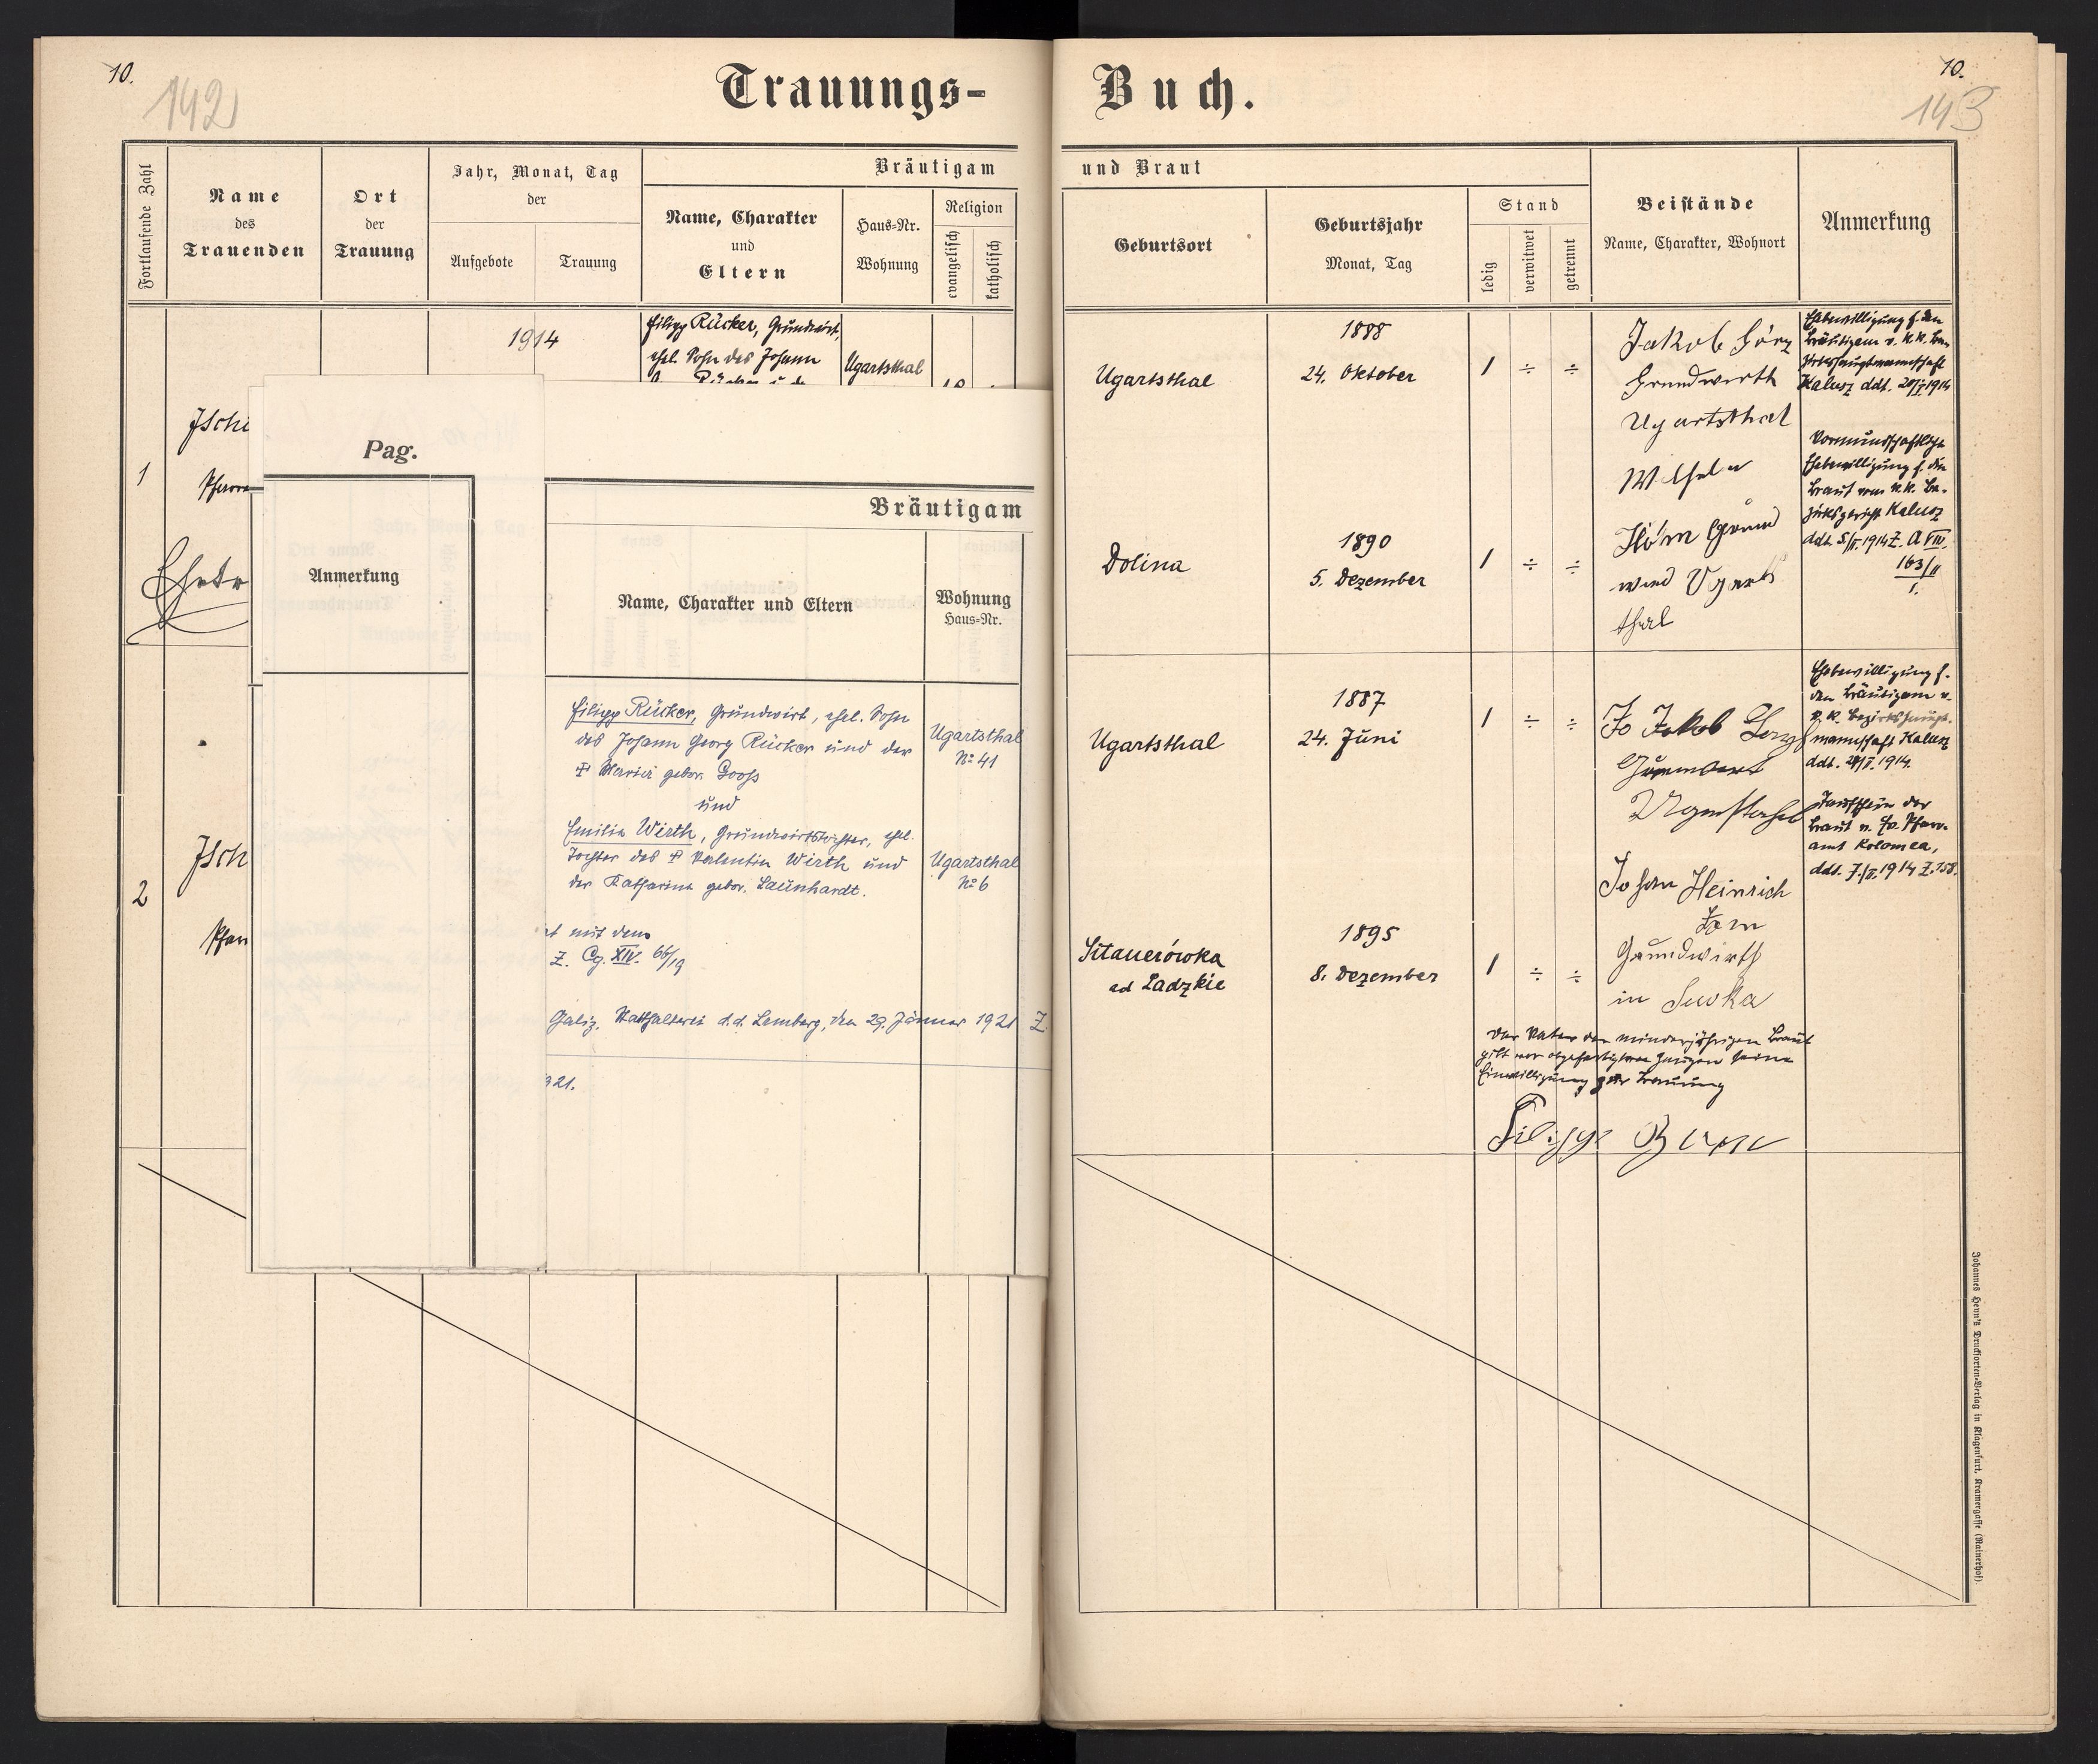 10.
142
Trauungs-
Fortlaufende Zahl
Name
des
Trauenden
Ort
der
Trauung
Jahr, Monat, Tag
der
Aufgebote
Trauung
Bräutigam
Name, Charakter
und
Eltern
Haus-Nr.
Wohnung
Religion
evangelisch
katholisch
1914
Filipp Rücker, Grundwirt,
ehel. Sohn des Johann
Ugartsthal
1
2
Pag.
Anmerkung
Bräutigam
Name, Charakter und Eltern
Wohnung
Haus-Nr.
Filipp Rücker, Grundwirt, ehel. Sohn
des Johann Georg Rücker und der
Ugartsthal
№ 41
gebor. Gooss
und
Emilie Wirth, Grundwirtstochter, ehel.
Tochter des † Valentin Wirth und
der Katharina gebor. Launhardt.
Ugartsthal
№ 6
mit dem
Z. Cg. XIV. 66/19
Galiz. Statthalterei d.d. Lemberg, den 29. Jänner 1921 Z.
21.
10.
143
Buch.
und Braut
Geburtsort
Geburtsjahr
Monat, Tag
Stand
ledig
verwitwet
getrennt
Beistände
Name, Charakter, Wohnort
Anmerkung
Ugartsthal
1888
24. Oktober
1 ÷ ÷
Jakob
Grundwirth
Ugartsthal
Ehebewilligung f. den
Bräutigam v. k.k. Be-
zirkshauptmannschaft
Kalusz ddt.
Dolina
1890
5. Dezember
1 ÷ ÷
Vormundschaftliche
Ehebewilligung f. die
Braut vom k.k. Be-
zirksgericht Kalusz
163/11
1.
Ugartsthal
1887
24. Juni
1 ÷ ÷
Jakob
Ehebewilligung f.
den Bräutigam v.
k.k. Bezirkshaupt-
mannschaft Kalusz
Taufschein der
Braut v. Ev. Pfarr-
amt Kolomea,
ddt. 1914 Z. 158.
ad Ladzkie
1895
8. Dezember
1 ÷ ÷
Johan Heinrich
Grundwirth
in
Der Vater der minderjährigen Braut
gibt vor Zeugen seine
Einwilligung zur Trauung
Johannes Heyn's Drucksorten-Verlag in Klagenfurt, Kramergasse (Rainerhof).